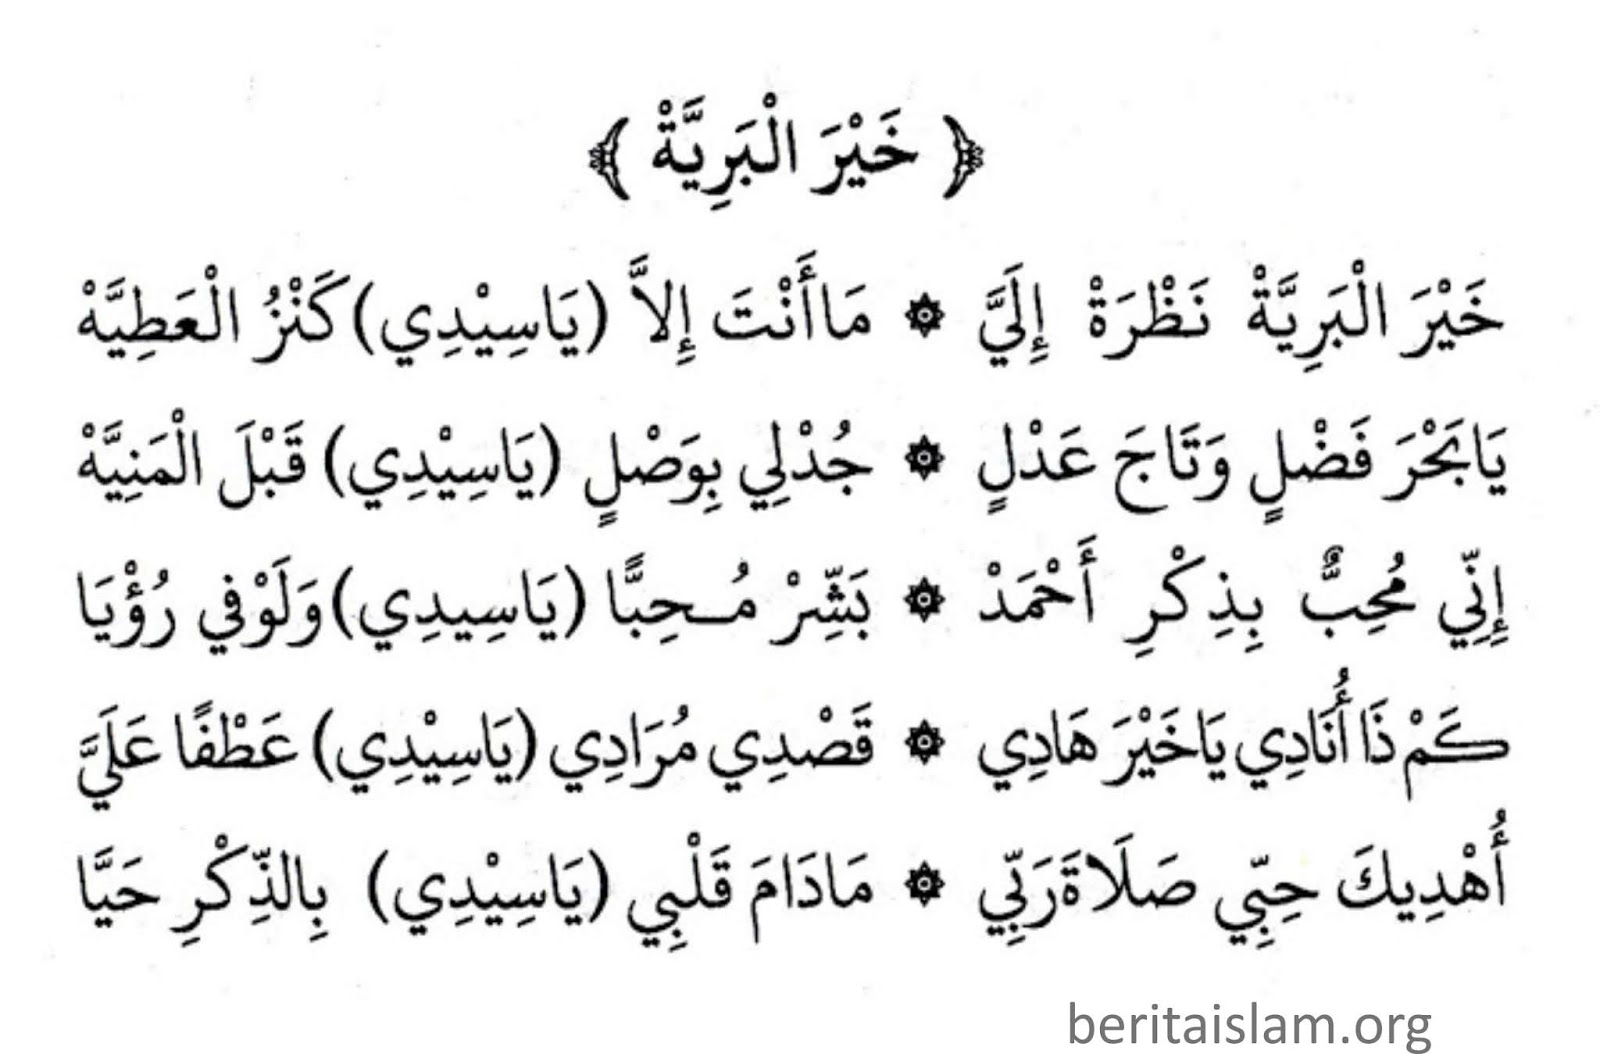 ﴿ خَيْرَ الْبَرِيَّةْ ﴾
خَيْرَ الْبَرِيَّةْ نَظْرَةْ إِلَيَّ ۞ مَاأَنْتَ إِلاَّ (يَاسِيْدِي) كَنْزُ الْعَطِيَّهْ
يَابَحْرَ فَضْلٍ وَتَاجَ عَدْلٍ ۞ جُدْلِي بِوَصْلٍ (يَاسِيْدِي) قَبْلَ الْمَنِيَّهْ
إِنِّي مُحِبٌّ بِذِكْرِ أَحْمَدْ ۞ بَشِّرْ مُـحِبًّا (يَاسِيدِي) وَلَوْفِي رُؤْيَا
كَمْ ذَا أُنَادِي يَاخَيْرَ هَادِي ۞ قَصْدِي مُرَادِي (يَاسِيْدِي) عَطْفًا عَلَيَّ
أُهْدِيكَ حِبِّي صَلَاةَ رَبِّي ۞ مَادَامَ قَلْبِي (يَاسِيْدِي) بِالذِّكْرِ حَيَّا
beritaislam.org